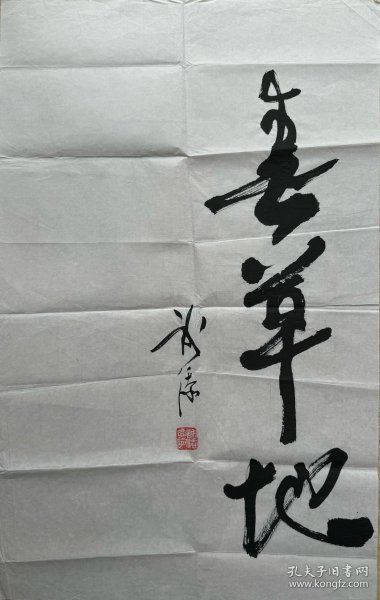 春草地
孔夫子旧书网
www.kongfz.com